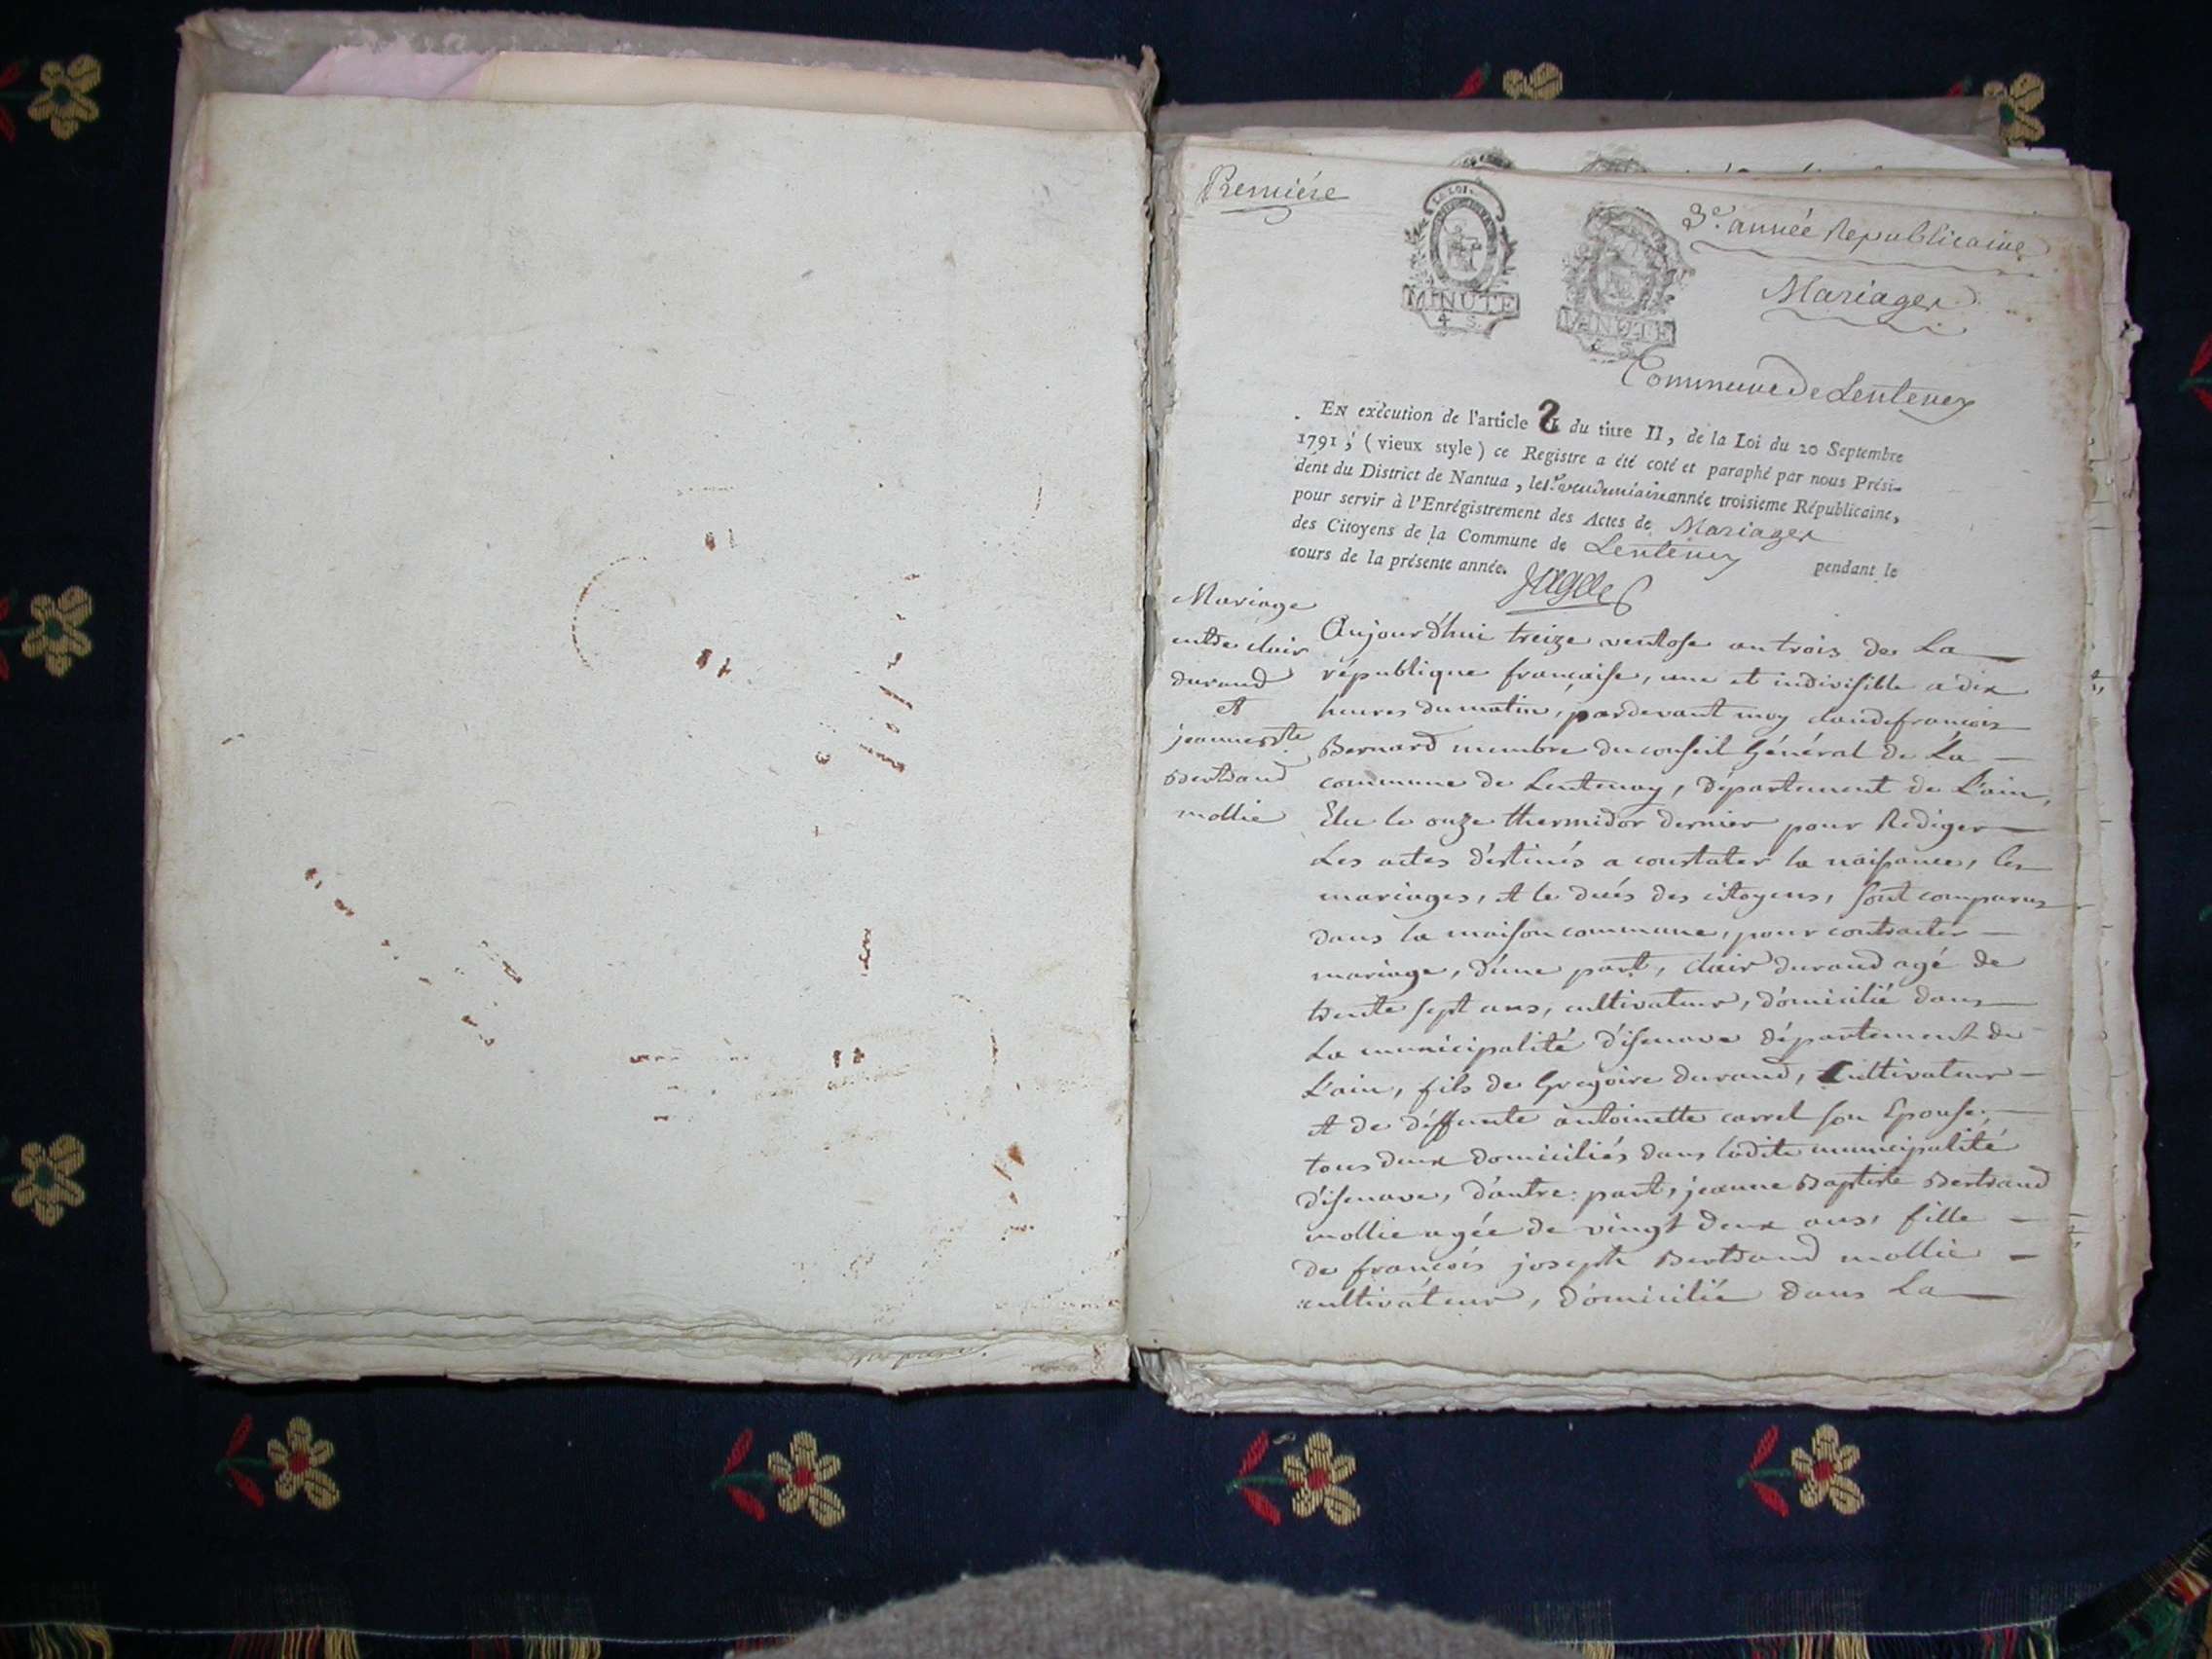 Premiére
3e. année Republicaine
Mariages
LA LOI
MINUTE
4 S
MINUTE
Commune de Lentenay
EN exécution de l'article 2 du titre II, de la Loi du 20 Septembre
1791; (vieux style) ce Registre a été coté et paraphé par nous Prési-
dent du District de Nantua, le 1er vendemiaire année troisieme Républicaine,
pour servir à l'Enrégistrement des Actes de Mariages
des Citoyens de la Commune de Lentenay pendant le
cours de la présente année.
Mariage
entre clair
durand
et
jeanne bte
Bertrand
mollie
Aujourd'hui treize ventose an trois de La
république française, une et indivisible a dix
heures du matin, pardevant moy claude françois
Bernard membre du conseil Général de La
commune de Lentenay, département de L'ain,
Elu le onze thermidor dernier pour Rediger
Les actes déstinés a constater la naissance, les
mariages, et le decés des citoyens, sont comparus
dans la maison commune, pour contracter
mariage, d'une part, clair durand agé de
trente sept ans, cultivateur, domicilié dans
La municipalité d'isenave département de
L'ain, fils de Gregoire durand, Cultivateur
et de déffunte antoinette carrel son Epouse,
tous deux domiciliés dans ladite municipalité
d'isenave, d'autre part, jeanne Baptiste Bertrand
mollie agée de vingt deux ans, fille
de françois joseph Bertrand mollie
cultivateur, domicilié dans La